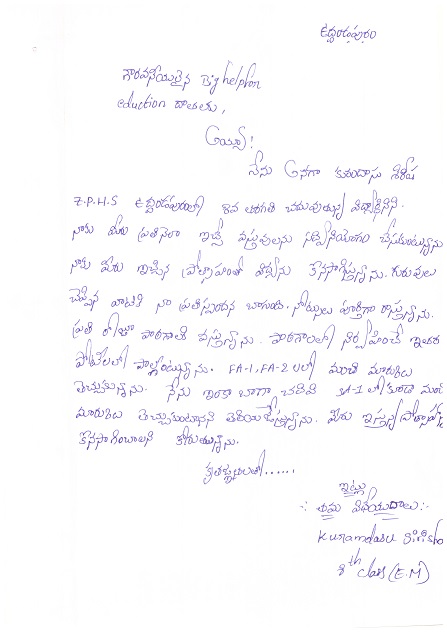 ఉద్దండపురం
గౌరవనీయులైన Big helpfon
eduction దాతలకు,
అయ్యా!
నేను అనగా కురందాసు శిరీష
Z.P.H.S ఉద్దండపురంలో 8వ తరగతి చదువుతున్న విద్యార్థినిని.
నాకు మీరు ప్రతినెలా ఇచ్చే వస్తువులను సద్వినియోగం చేసుకుంటున్నాను
నాకు మీరు ఇచ్చిన ప్రోత్సాహంతో విద్యను కొనసాగిస్తున్నాను. గురువులు
చెప్పిన వాటికి నా ప్రతిస్పందన బాగుంది. నోట్సులు పూర్తిగా రాస్తున్నాను.
ప్రతి రోజూ పాఠశాలకి వస్తున్నాను. పాఠశాలలో నిర్వహించే ఇతర
పోటీలలో పాల్గొంటున్నాను. FA-1, FA-2 లలో మంచి మార్కులు
తెచ్చుకున్నాను. నేను ఇంకా బాగా చదివి SA-1 లో కూడా మంచి
మార్కులు తెచ్చుకుంటానని తెలియజేస్తున్నాను. మీరు ఇస్తున్న ప్రోత్సాహాన్ని
కొనసాగించాలని కోరుతున్నాను.
కృతజ్ఞతలతో......
ఇట్లు
తమ విధేయుదాలు:-
Kuramdasu Sirisha
8th class (E.M)